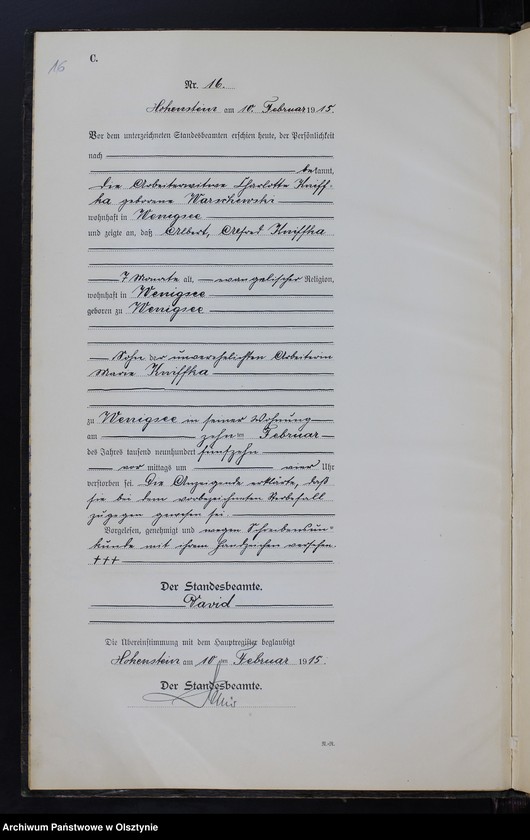 16
C.
Nr. 16.
Hohenstein am 10. Februar 1915.
Vor dem unterzeichneten Standesbeamten erschien heute, der Persönlichkeit
nach
bekannt,
die Arbeiterwitwe Charlotte Kniff-
ka geborene Warschewski
wohnhaft in Wenigsee
und zeigte an, daß Albert, Alfred Kniffka
7 Monate alt, evangelischer Religion,
wohnhaft in Wenigsee
geboren zu Wenigsee
Sohn der unverehelichten Arbeiterin
Marie Kniffka
zu Wenigsee in seiner Wohnung
am zehnten Februar
des Jahres tausend neunhundert fünfzehn
vor mittags um vier Uhr
verstorben sei. Die Anzeigende erklärte, daß
sie bei dem vorbezeichneten Sterbefall
zugegen gewesen sei.
Vorgelesen, genehmigt und wegen Schreibensun-
kunde mit ihrem Handzeichen versehen.
+++
Der Standesbeamte.
David
Die Übereinstimmung mit dem Hauptregister beglaubigt
Hohenstein am 10ten Februar 1915.
Der Standesbeamte.
Archiwum Państwowe w Olsztynie